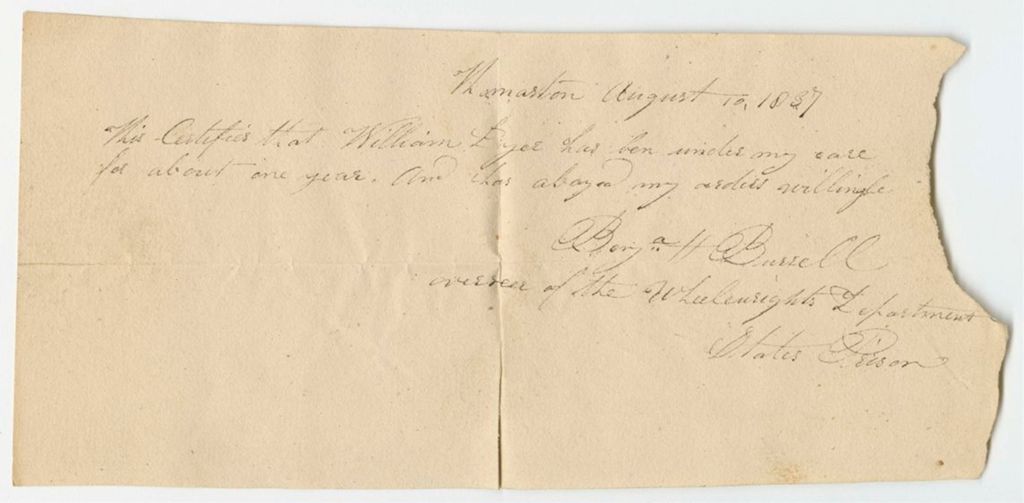 Thomaston August 10, 1837
This Certifies that William Dyer has ben under my care
for about one year. And has abayed my orders willingle
Benja H Burrell
overseer of the Wheelwrights Department
States Prison